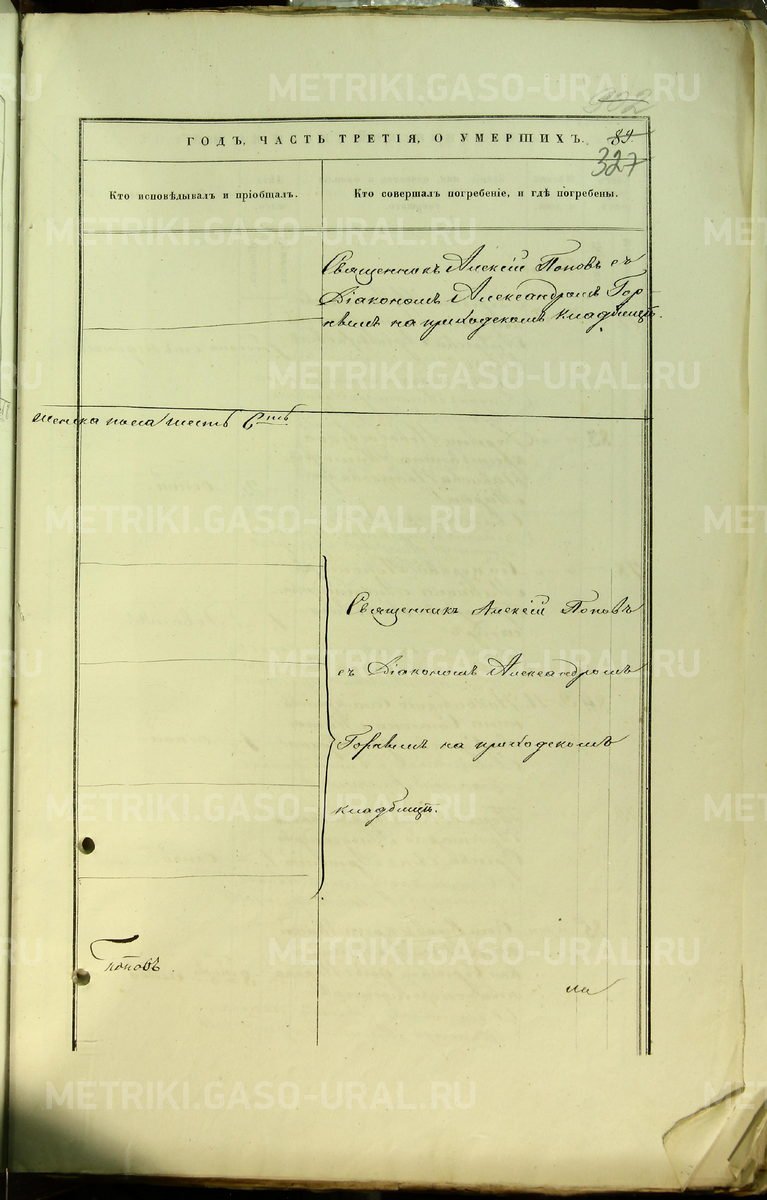 902
ГОДЪ, ЧАСТЬ ТРЕТІЯ, О УМЕРШИХЪ. 89.
327
Кто исповѣдывалъ и пріобщалъ.
Кто совершалъ погребеніе, и гдѣ погребены.
Священникъ Алексій Поповъ съ
Діакономъ Александромъ Гор
нымъ на приходскомъ кладбищѣ.
женска пола шесть 6
Священникъ Алексій Поповъ
съ Діакономъ Александромъ
на приходскомъ
кладбищѣ.
METRIKI.GASO-URAL.RU